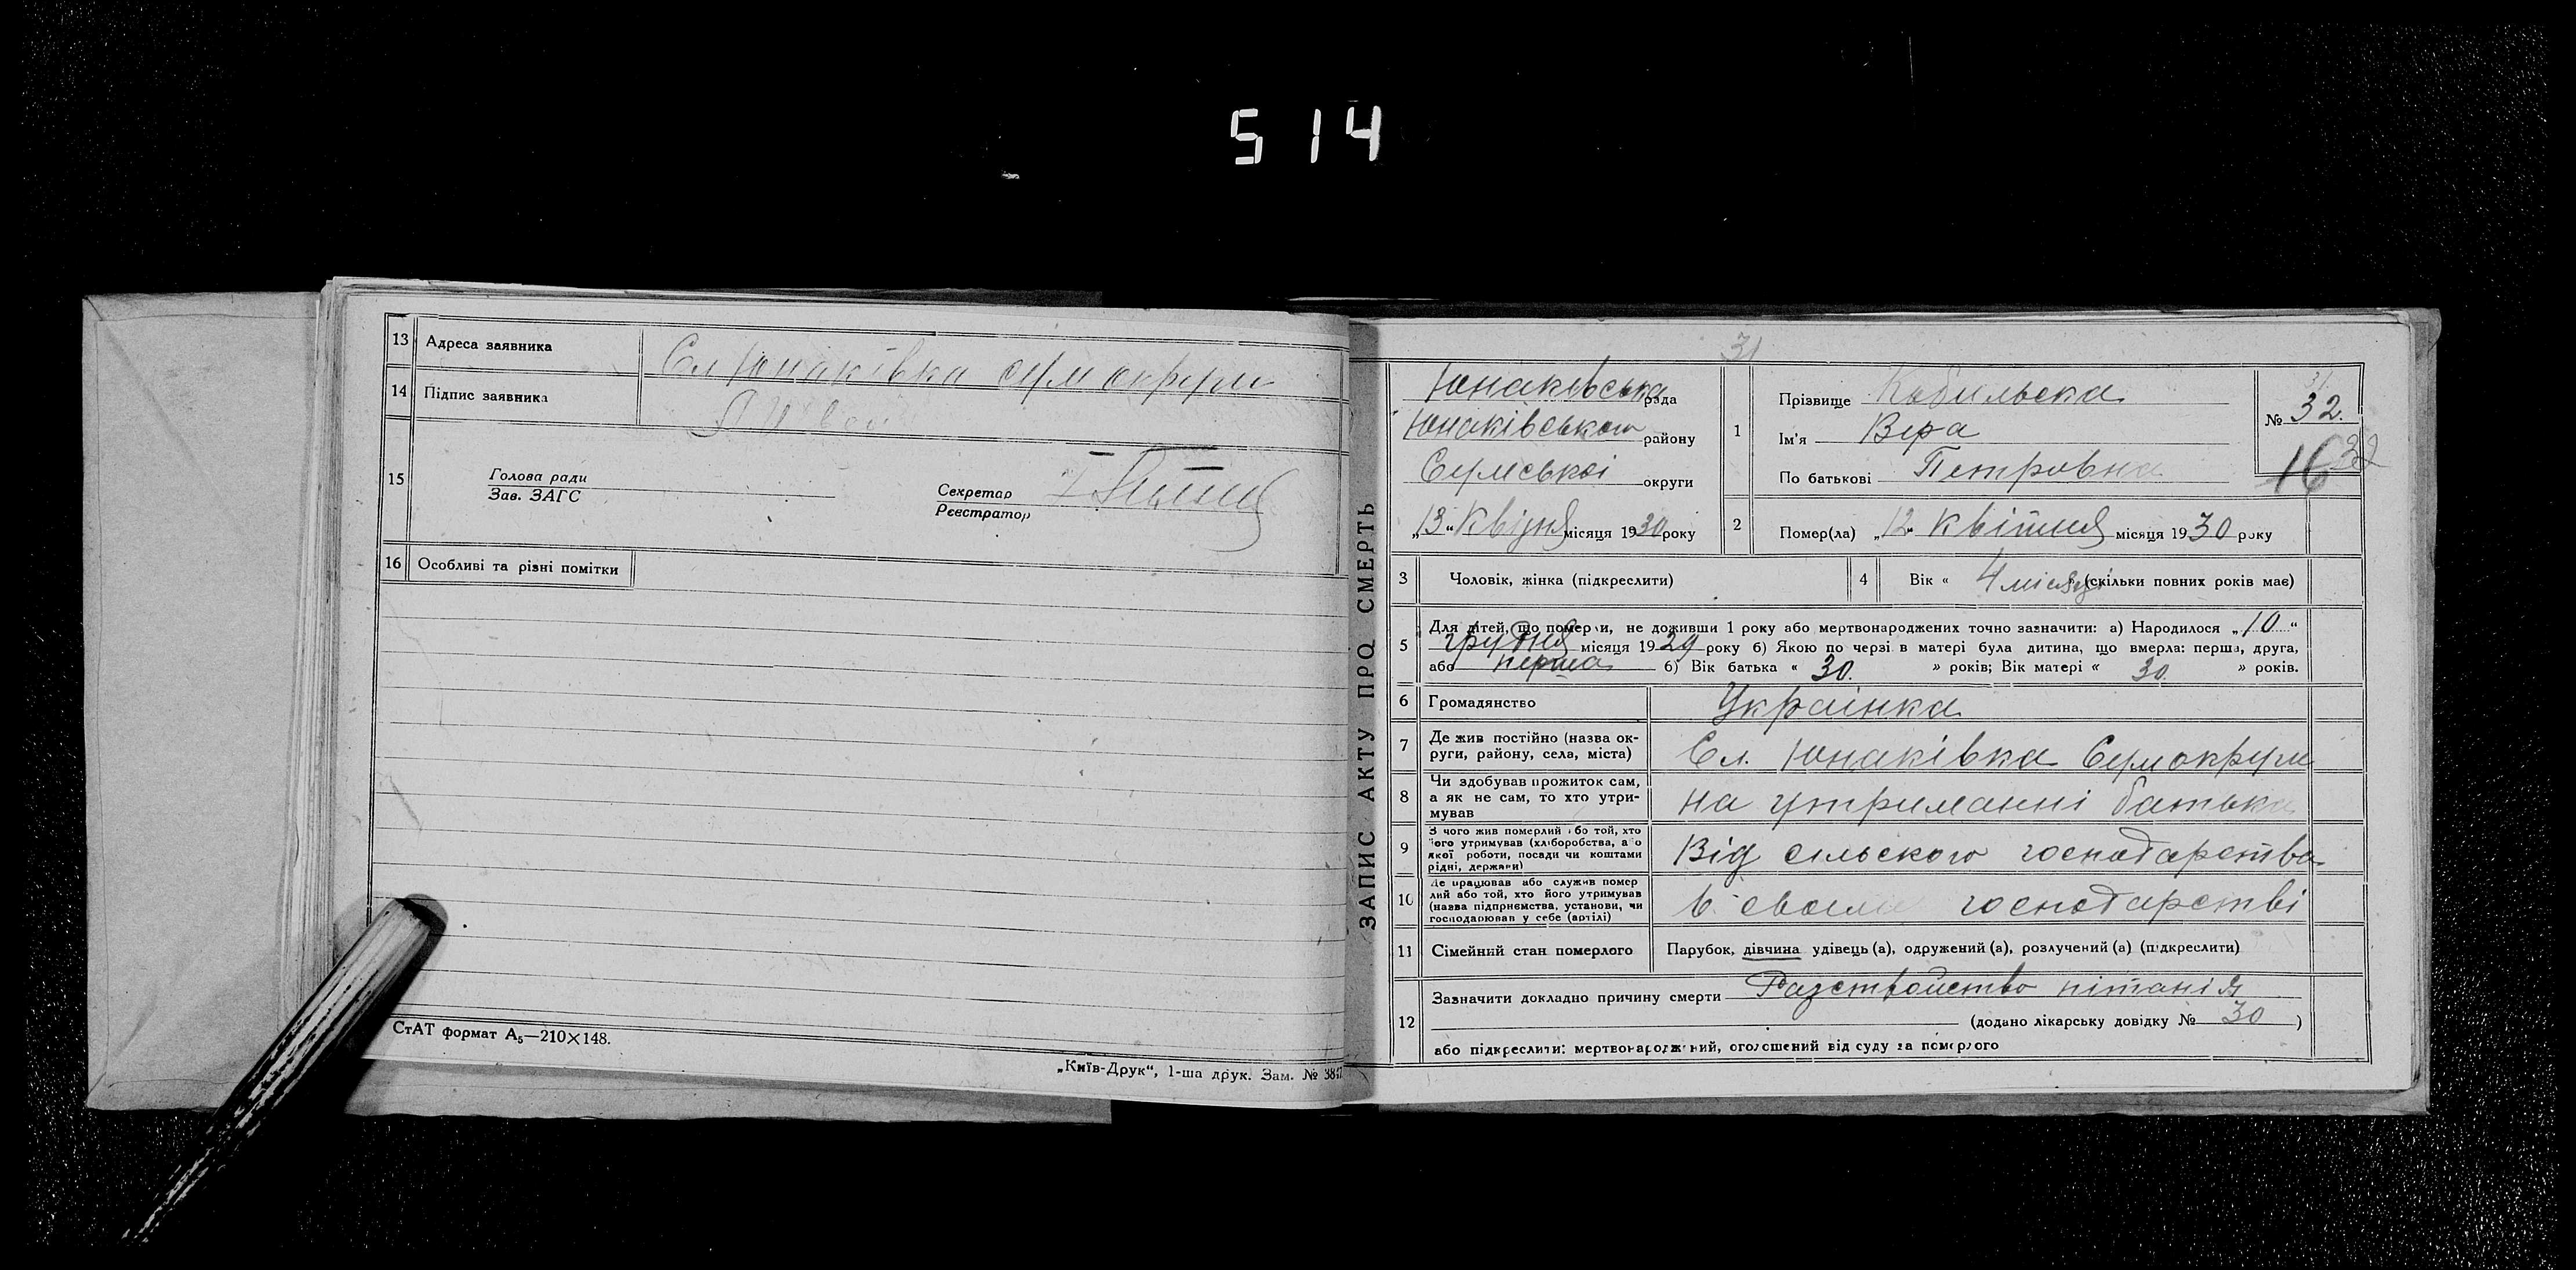 514
13 Адреса заявника Сл Юнаківка сум округи
14 Підпис заявника
15
Голова ради
Зав. ЗАГС
Секретар
Реєстратор
16 Особливі та різні помітки
СтАТ формат А₅—210×148.
„Київ-Друк“, 1-ша друк. Зам. №
ЗАПИС АКТУ ПРО СМЕРТЬ
31
Юнаківська рада
Юнаківського району
Сумської округи
„13“ Квітня місяця 1930 року
1
Прізвище
Ім'я Вера
По батькові Петровна
31
№ 32.
16 32
2 Помер(ла) „12“ Квітня місяця 1930 року
3 Чоловік, жінка (підкреслити)
4 Вік « 4 місяці » (скільки повних років має)
5 Для дітей, що померли, не доживши 1 року або мертвонароджених точно зазначити: а) Народилося „10“
грудня місяця 1929 року б) Якою по черзі в матері була дитина, що вмерла: перша, друга,
або перша б) Вік батька « 30. » років; Вік матері « 30 » років.
6 Громадянство Українка
7 Де жив постійно (назва ок-
руги, району, села, міста) Сл. Юнаківка Сумокруги
8 Чи здобував прожиток сам,
а як не сам, то хто утри-
мував на утриманні батька
9 З чого жив померлий або той, хто
його утримував (хліборобства, або
якої роботи, посади чи коштами
рідні, держави) Від сільского господарства
10 Де працював або служив помер
лий або той, хто його утримував
(назва підприємства, установи, чи
господарював у себе (артілі) в своем господарстві
11 Сімейний стан померлого Парубок, дівчина удівець (а), одружений (а), розлучений (а) (підкреслити)
12 Зазначити докладно причину смерти Разстройство пітанія
(додано лікарську довідку № 30)
або підкреслити: мертвонароджений, оголошений від суду за померлого